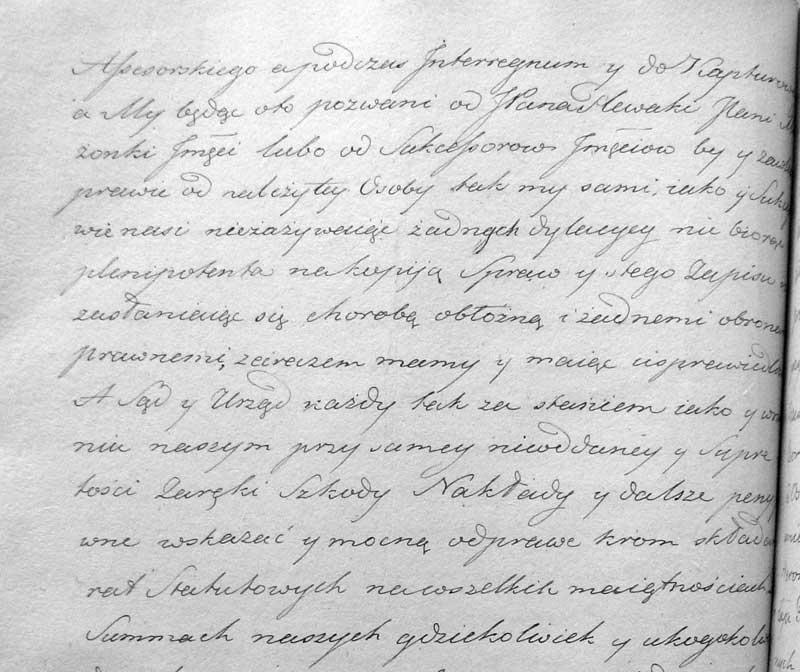 Assesorskiego a podczas Interregnum y do Kapturow
a My będąc oto pozwani od JPana Hlewaki JPani
żonki Jmści lubo od Sukcessorow Jmściow by y zaszłe
prawu od należytey Osoby tak my sami, iako y Sukce
wie nasi nie zażywaiąc żadnych dylacyey nie biorąc
plenipotenta na kopiją Spraw y stego Zapisu
zasłaniaiąc się chorobą obłożną i żadnemi obrona
prawnemi, zarazem mamy y maią usprawiedl
A Sąd y Urząd każdy tak za staniem iako y
niu naszym przy samey nieoddaney y Sypre
tości Zaręki Szkody Nakłady y dalsze peny
wne wskazać y mocną odprawę krom składa
rat Statutowych na wszelkich maiętnościach
Summach naszych gdziekolwiek y ukogokolw